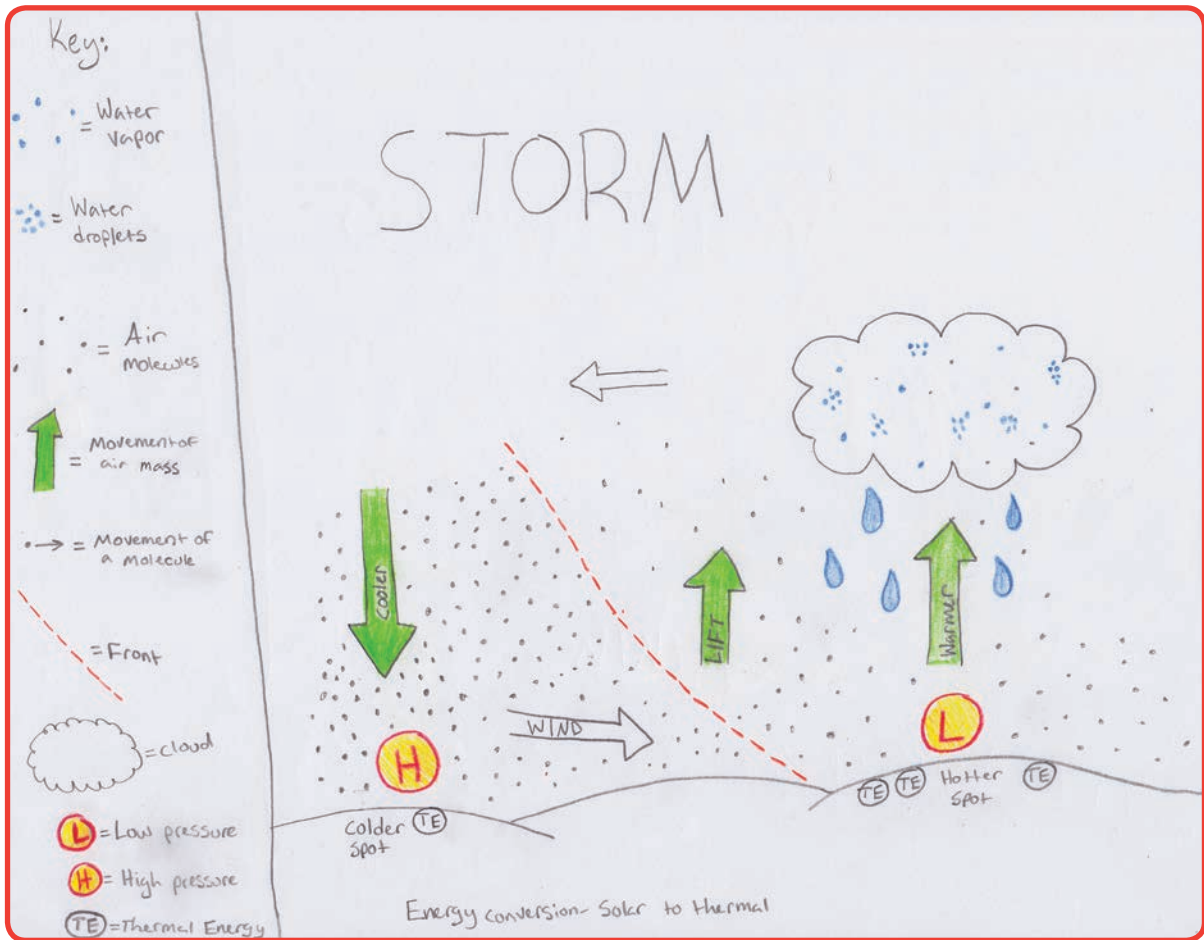 Key:
= Water
vapor
= Water
droplets
= Air
molecules
= Movement of
air mass
= Movement of
a molecule
= Front
= cloud
L = Low pressure
H = High pressure
TE = Thermal Energy
STORM
cooler
LIFT
Warmer
WIND
H
L
Colder TE
Spot
TE TE Hotter TE
Spot
Energy conversion - Solar to thermal